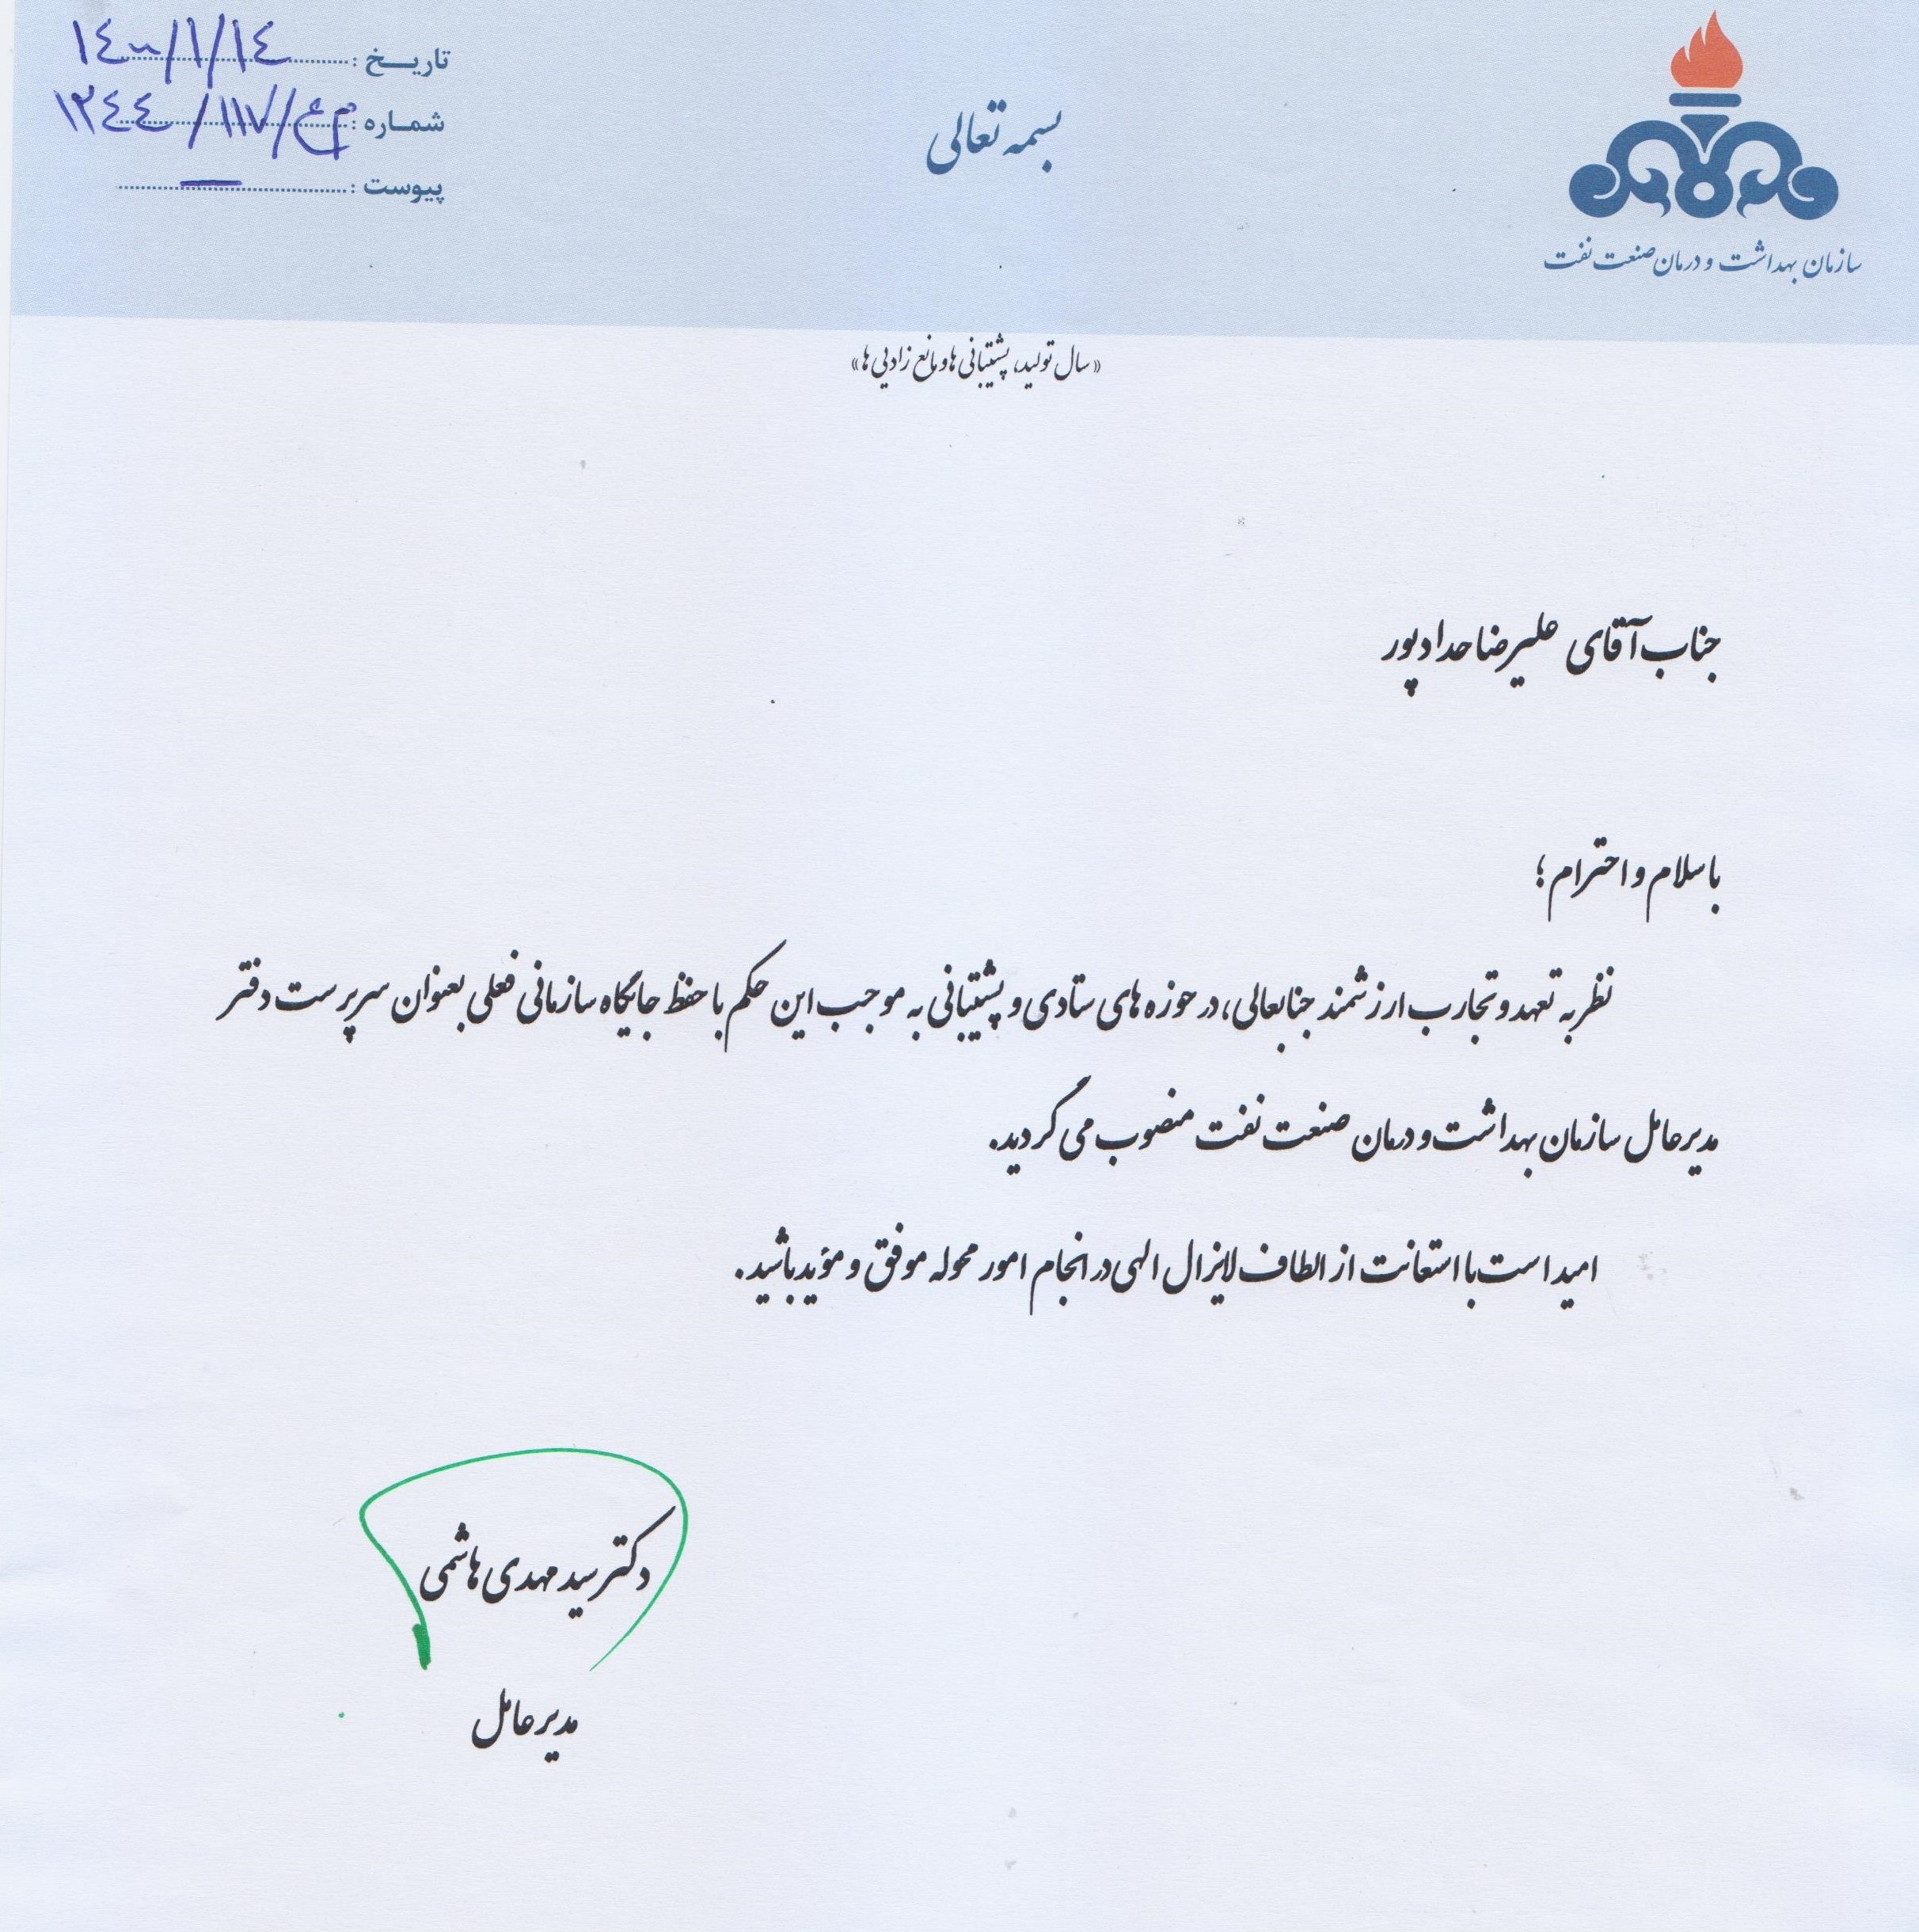 بسمه تعالی
سازمان بهداشت و درمان صنعت نفت
تاریخ : ۱۴۰۰/۱/۱۴
شماره : م ع/۱۱۷/۱۲۴۴
پیوست : —
«سال تولید، پشتیبانی ها و مانع زدایی ها»
جناب آقای علیرضا حدادپور
با سلام و احترام ؛
نظر به تعهد و تجارب ارزشمند جنابعالی، در حوزه های ستادی و پشتیبانی به موجب این حکم با حفظ جایگاه سازمانی فعلی بعنوان سرپرست دفتر
مدیرعامل سازمان بهداشت و درمان صنعت نفت منصوب می گردید.
امید است با استعانت از الطاف لایزال الهی در انجام امور محوله موفق و مؤید باشید.
دکتر سید مهدی هاشمی
مدیرعامل